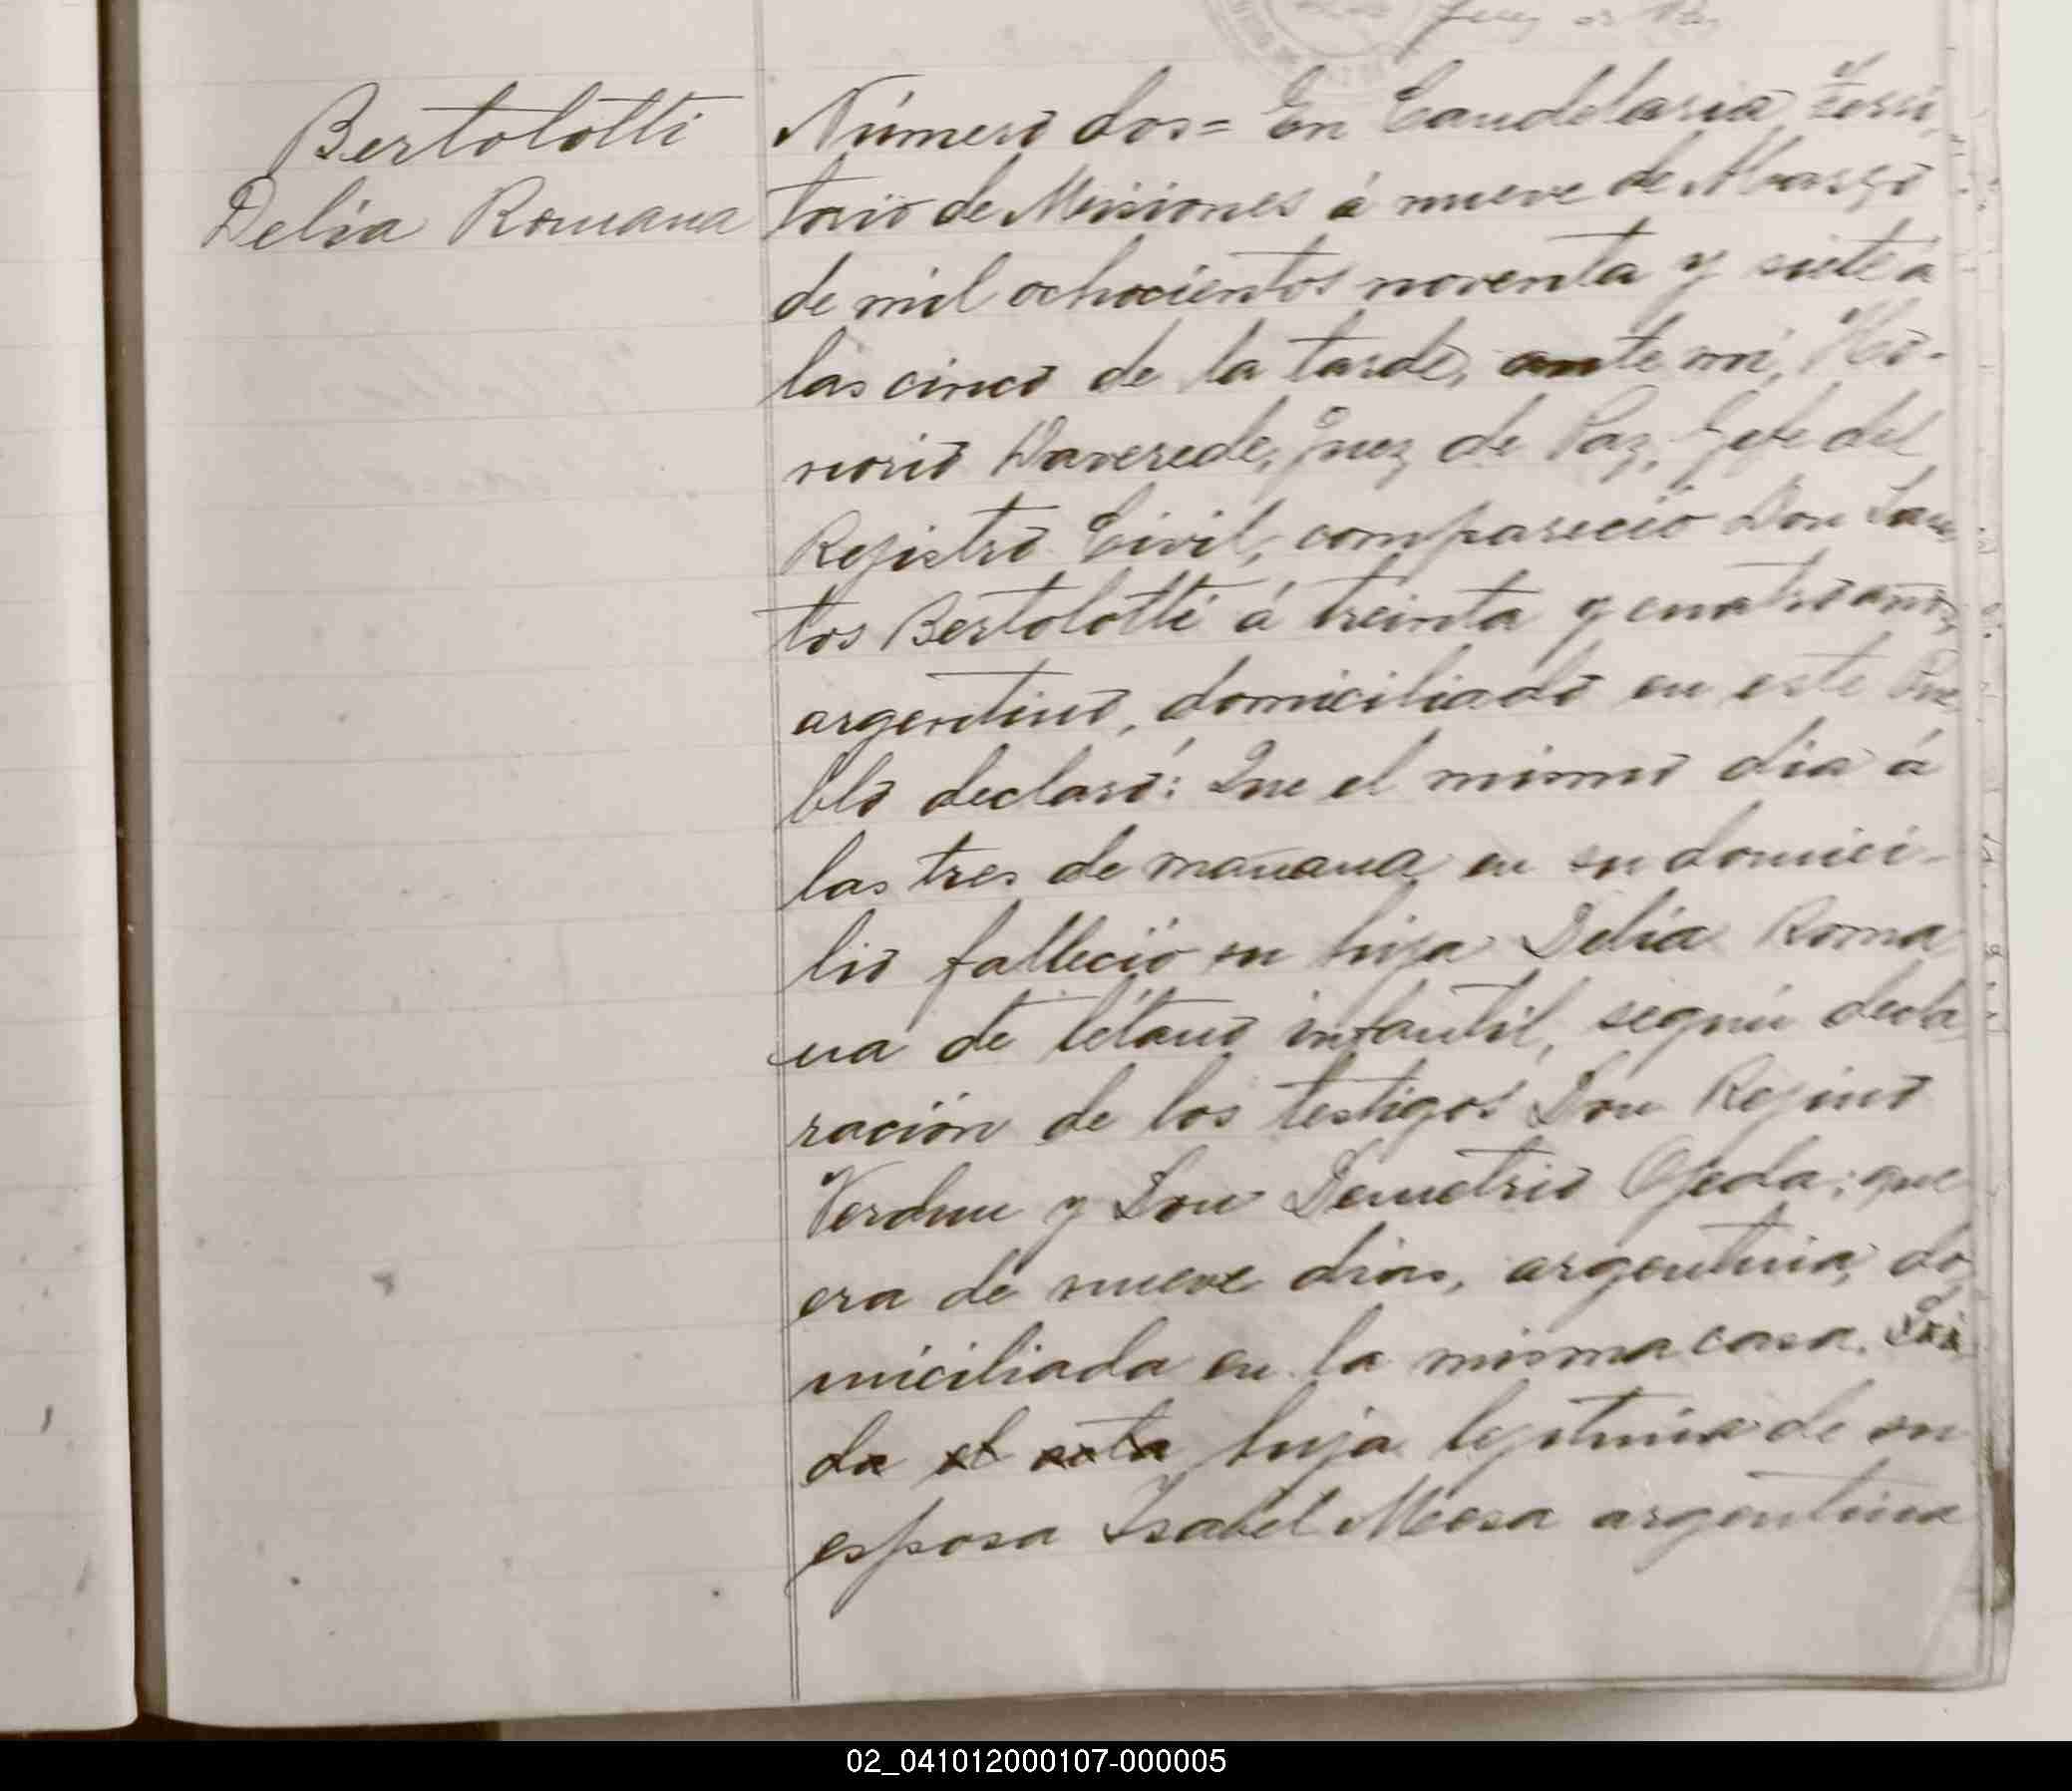 Juez de Paz
Bertolotti
Delia Romana
Número dos= En Candelaria, Terri
torio de Misiones á nueve de Marzo
de mil ochocientos noventa y siete á
las cinco de la tarde, ante mí, Ho-
norio Daverede, Juez de Paz, Gefe del
Rejistro Civil, compareció Don San
tos Bertolotti á treinta y cuatro años,
argentino, domiciliado en este Pue
blo declaró: Que el mismo dia á
las tres de mañana en su domici-
lio falleció su hija Delia Roma
na de tétano infantil, según decla
ración de los testigos Don Rejino
Verdun y Don Demetrio Ojeda; que
era de nueve dias, argentina, do
miciliada en la misma casa.
da el esta hija lejitima de su
esposa Isabel Meesa argentina
02_041012000107-000005